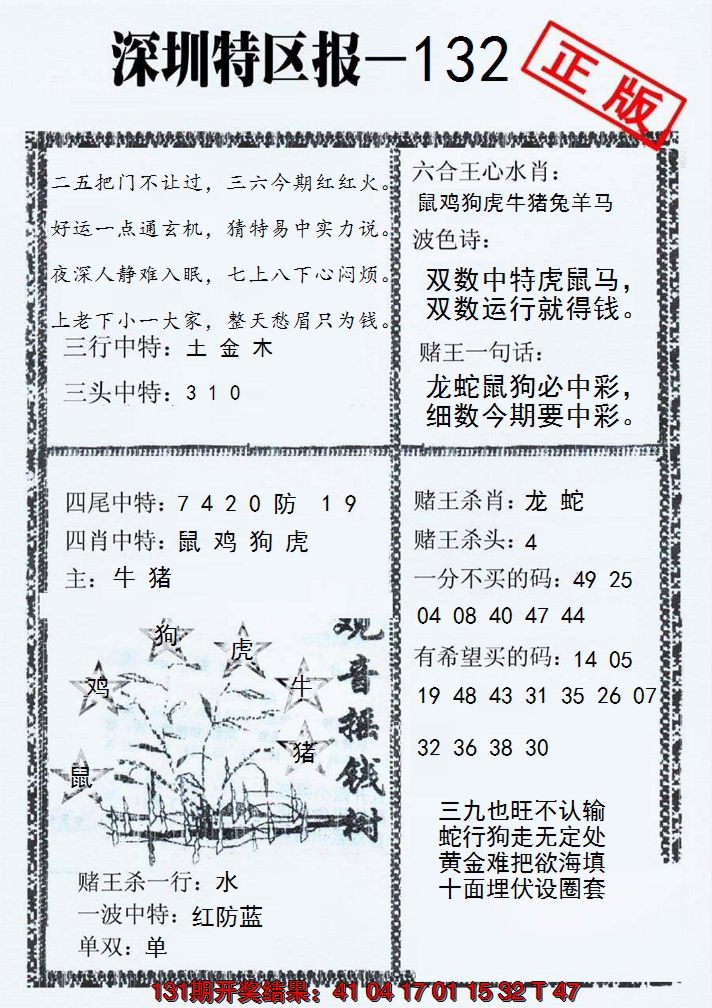 深圳特区报－132
正版
二五把门不让过，三六今期红红火。
好运一点通玄机，猜特易中实力说。
夜深人静难入眠，七上八下心闷烦。
上老下小一大家，整天愁眉只为钱。
三行中特：土 金 木
三头中特：3 1 0
六合王心水肖：
鼠鸡狗虎牛猪兔羊马
波色诗：
双数中特虎鼠马，
双数运行就得钱。
赌王一句话：
龙蛇鼠狗必中彩，
细数今期要中彩。
四尾中特：7 4 2 0 防 1 9
四肖中特：鼠 鸡 狗 虎
主：牛 猪
狗
虎
鸡
牛
猪
鼠
观音摇钱树
赌王杀一行：水
一波中特：红防蓝
单双：单
赌王杀肖：龙 蛇
赌王杀头：4
一分不买的码：49 25
04 08 40 47 44
有希望买的码：14 05
19 48 43 31 35 26 07
32 36 38 30
三九也旺不认输
蛇行狗走无定处
黄金难把欲海填
十面埋伏设圈套
131期开奖结果：41 04 17 01 15 32 T 47